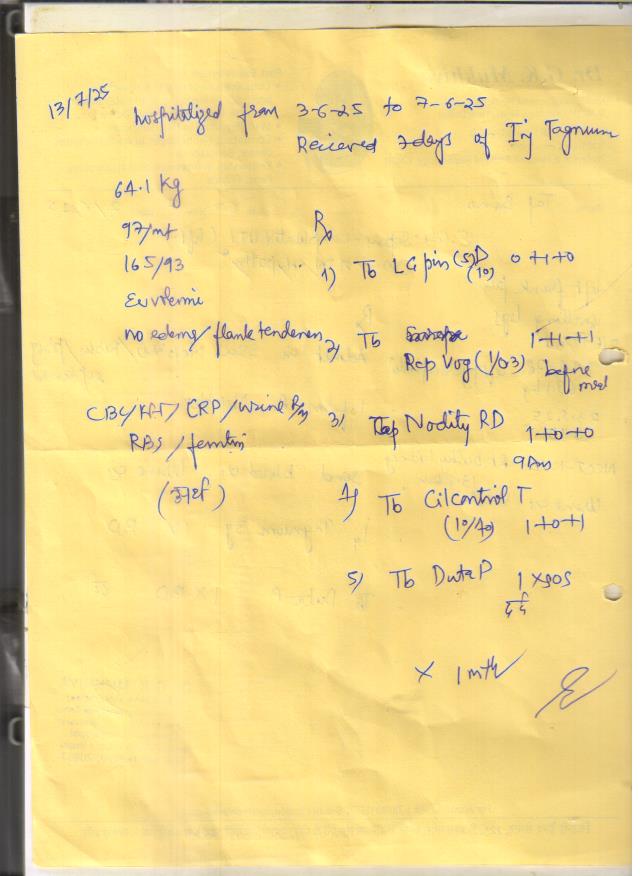 13/7/25
hospitalized from 3-6-25 to 7-6-25
Recieved 7days of Inj Tagnum
64.1 kg
97/mt
165/93
no edema/flank tenderness
CBC/KFT/CRP/urine R/M
RBS/ferritin
Rx
1) Tb LG pin (5)D (10) 0+1+0
2) Tb Rep Vog (1/03) 1+1+1 before meal
3) Nodity RD 1+0+0
9Am
4) Tb Cilcontrol T
(10/40) 1+0+1
5) Tb Duta P 1 x SOS
x 1 mth